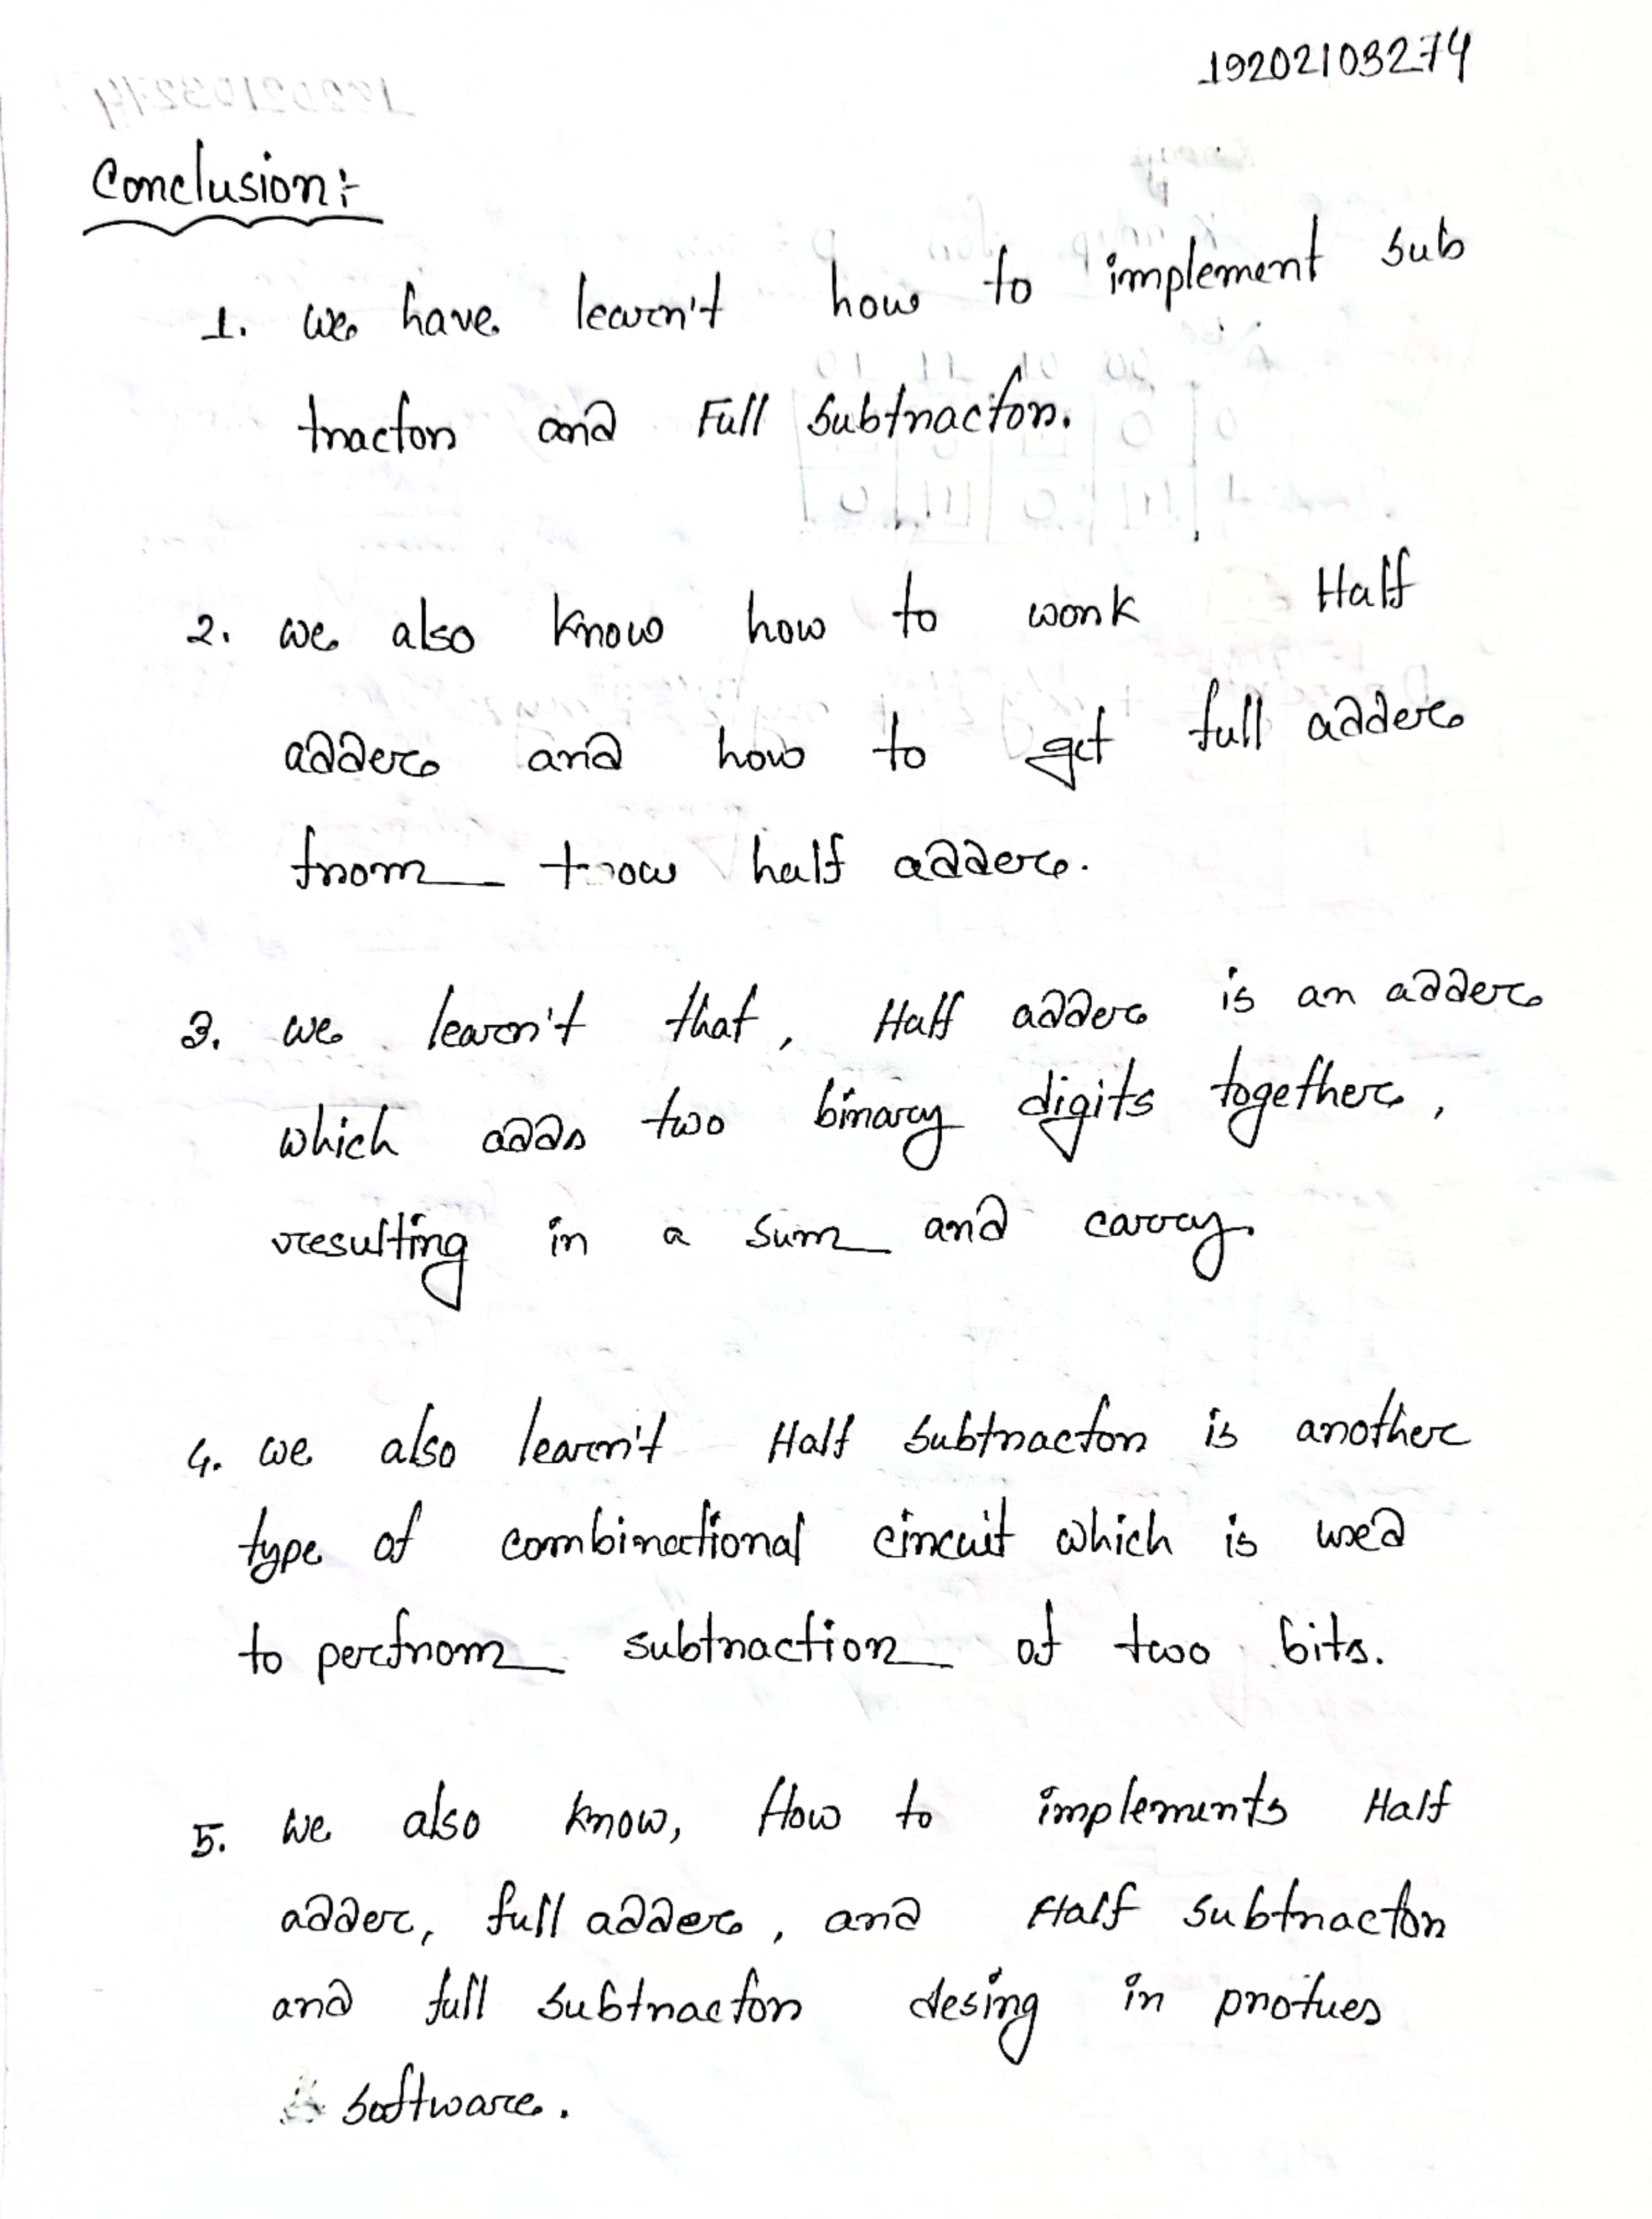 19202103274
Conclusion:-
1. we have learn't how to implement sub
tractor and Full subtractor.
2. we also know how to work Half
adder and how to get full adder
from tow half adder.
3. we learn't that, Half adder is an adder
which adds two binary digits together,
resulting in a sum and carry.
4. we also learn't Half subtractor is another
type of combinational circuit which is used
to perfrom subtraction of two bits.
5. we also know, How to implements Half
adder, full adder, and Half subtractor
and full subtractor desing in protues
software.